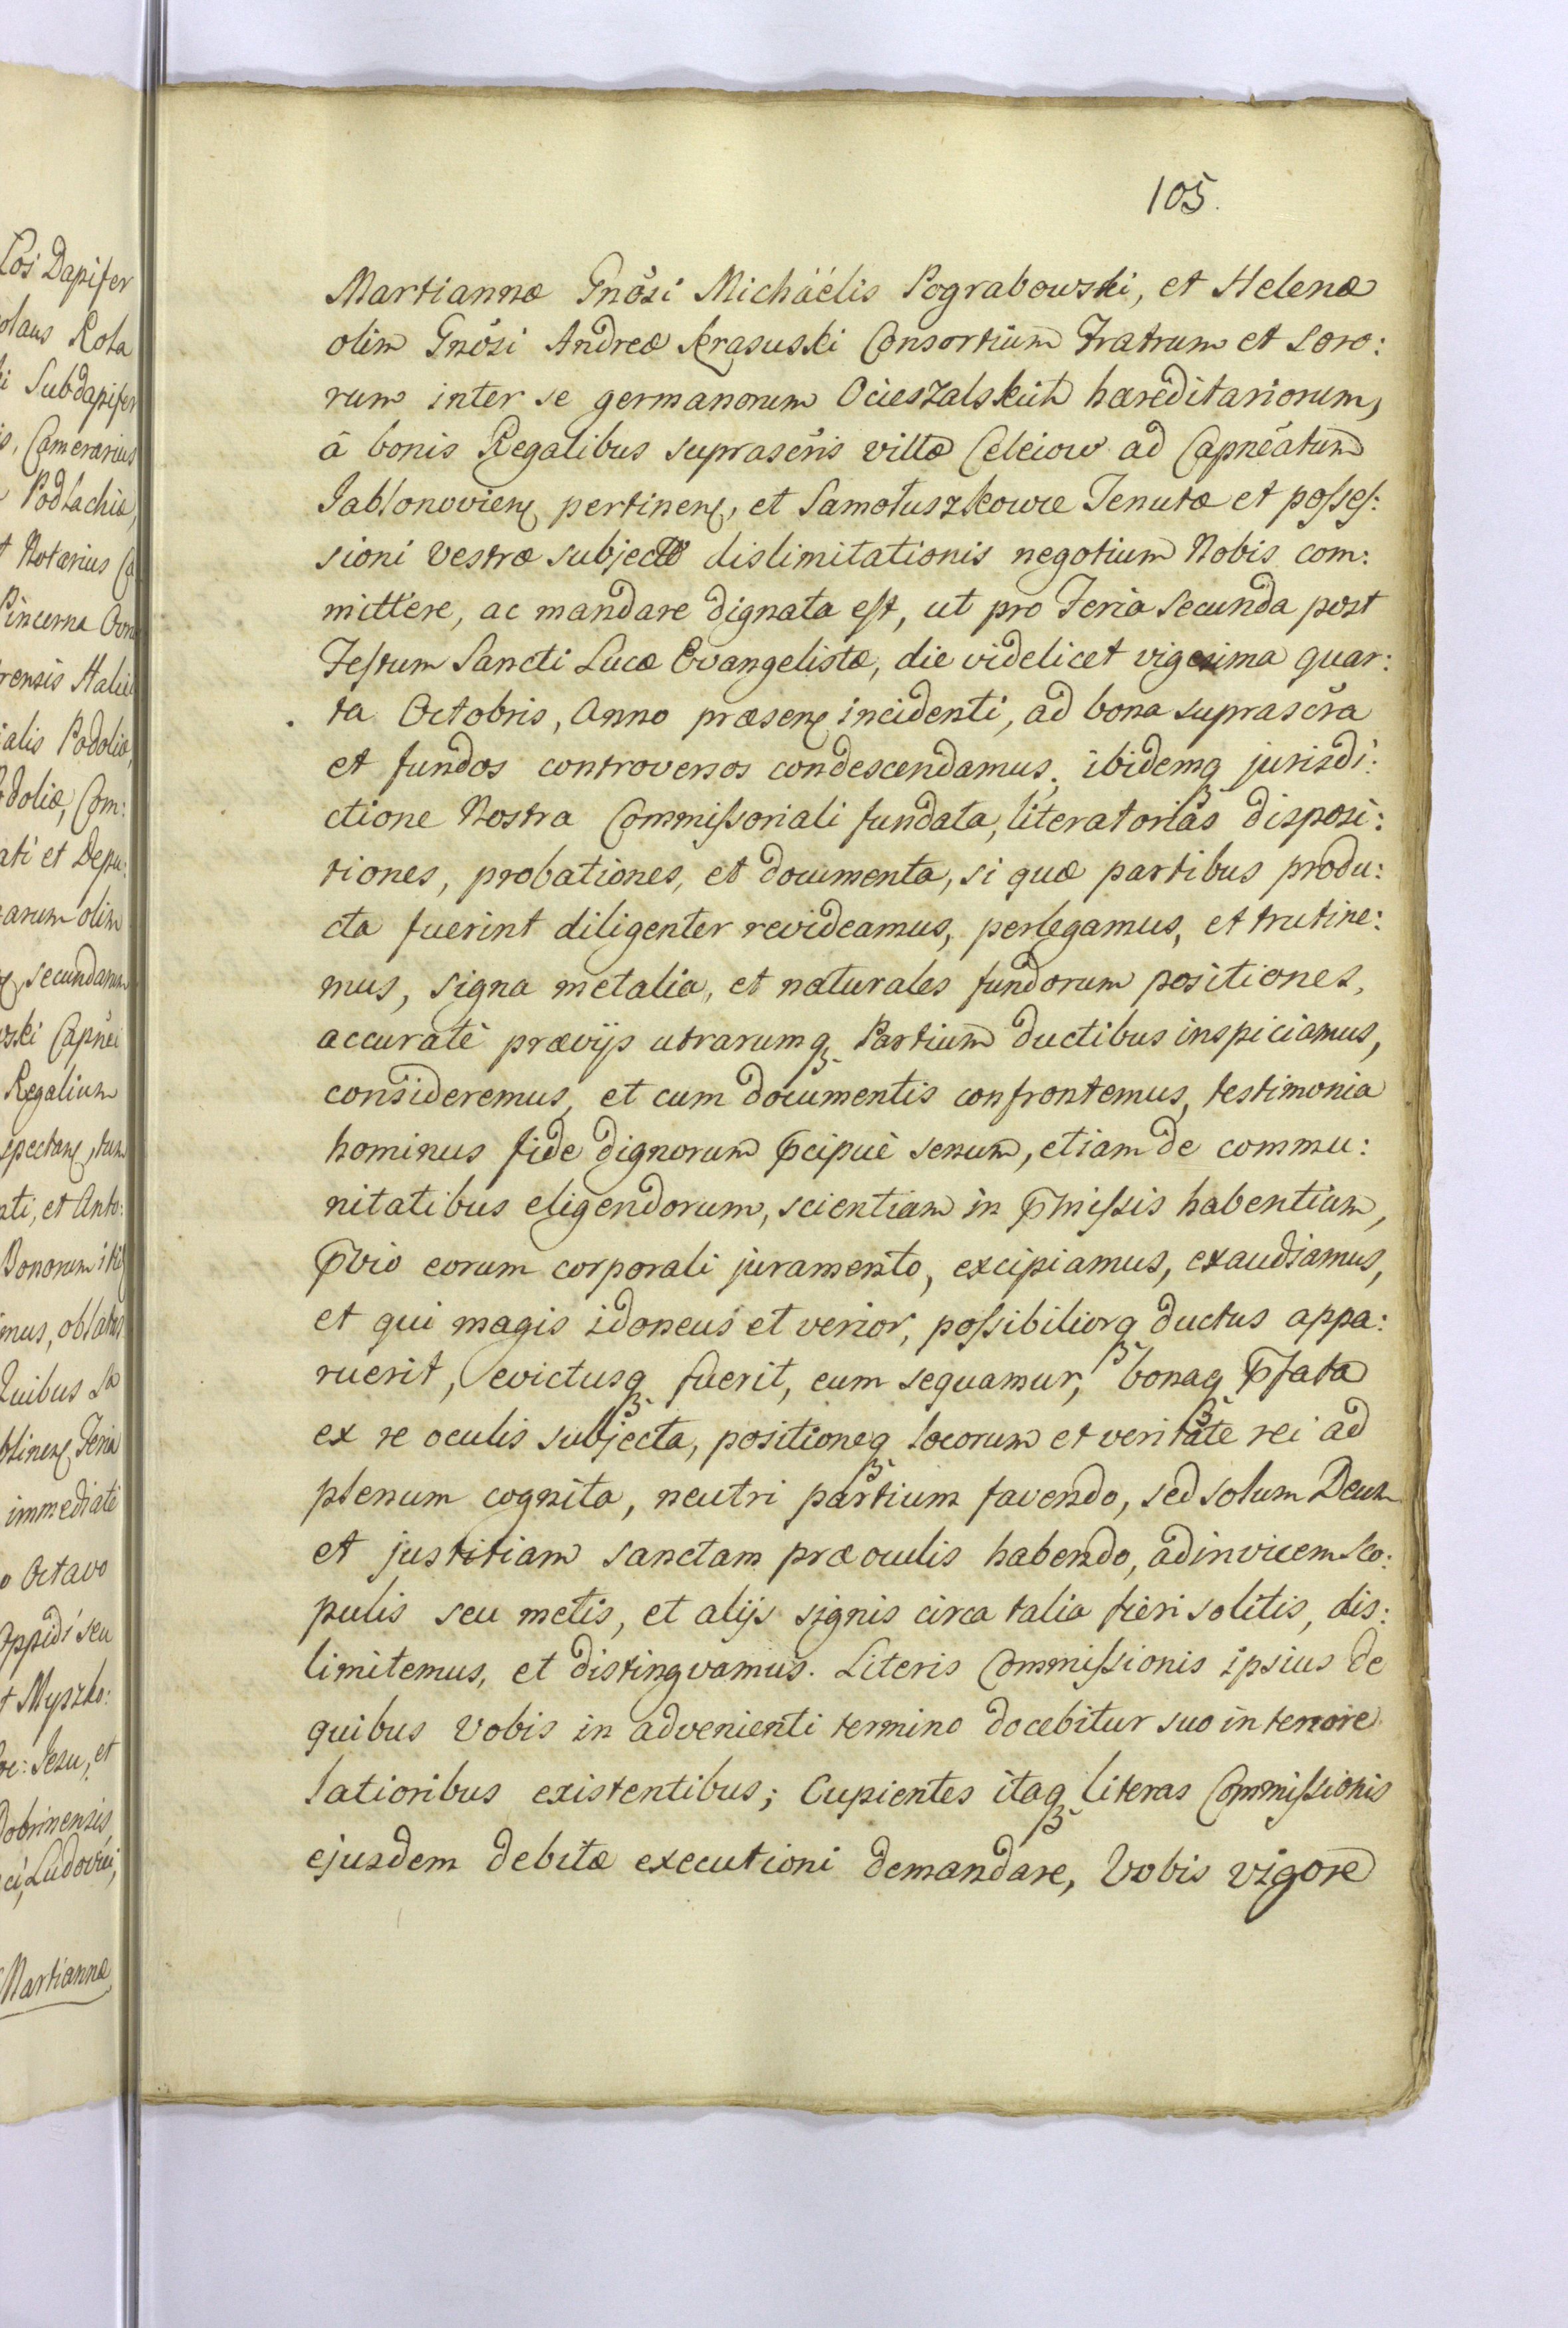 105.
Martiannæ Gnősi Micháélis Pograbowski, et Helenæ
olim Gnősi Andreæ Krasuski Consortium Fratrum et Soro:
rum inter se germanorum Ocieszalskich hæreditariorum,
à bonis Regalibus suprascris villæ Celeiow ad Capneatum
Jablonovien pertinen, et Samołuszkowce Tenutæ et posses:
sioni Vestræ subjectæ dislimitationis negotium Nobis com:
mittere, ac mandare dignata est, ut pro Feria Secunda post
Festum Sancti Lucæ Evangelistæ, die videlicet vigesima quar:
ta Octobris, Anno præsen incidenti, ad bona suprascra
et fundos controversos condescendamus, ibidemq jurisdi:
ctione Nostra Commissoriali fundata, literatorias disposi:
tiones, probationes, et documenta, si quæ partibus produ:
cta fuerint diligenter revideamus, perlegamus, et trutine:
mus, signa metalia, et naturales fundorum positiones,
accuratè prævijs utrarumq Partium ductibus inspiciamus,
consideremus, et cum documentis confrontemus, testimonia
hominus fide dignorum pcipuè senum, etiam de commu:
nitatibus eligendorum, scientiam in pmissis habentium,
pvio eorum corporali juramento, excipiamus, exaudiamus,
et qui magis idoneus et verior, possibiliorq ductus appa:
ruerit, evictusq fuerit, eum sequamur, bonaq pfata
ex re oculis subjecta, positioneq locorum et veritate rei ad
plenum cognita, neutri partium favendo, sed solum Deum
et justitiam sanctam præ oculis habendo, ad invicem sco:
pulis seu metis, et alijs signis circa talia fieri solitis, dis:
limitemus, et distingvamus. Literis Commissionis ipsius de
quibus Vobis in advenienti termino docebitur suo in tenore
latioribus existentibus; Cupientes itaq literas Commissionis
ejusdem debitæ executioni demandare, Vobis vigore